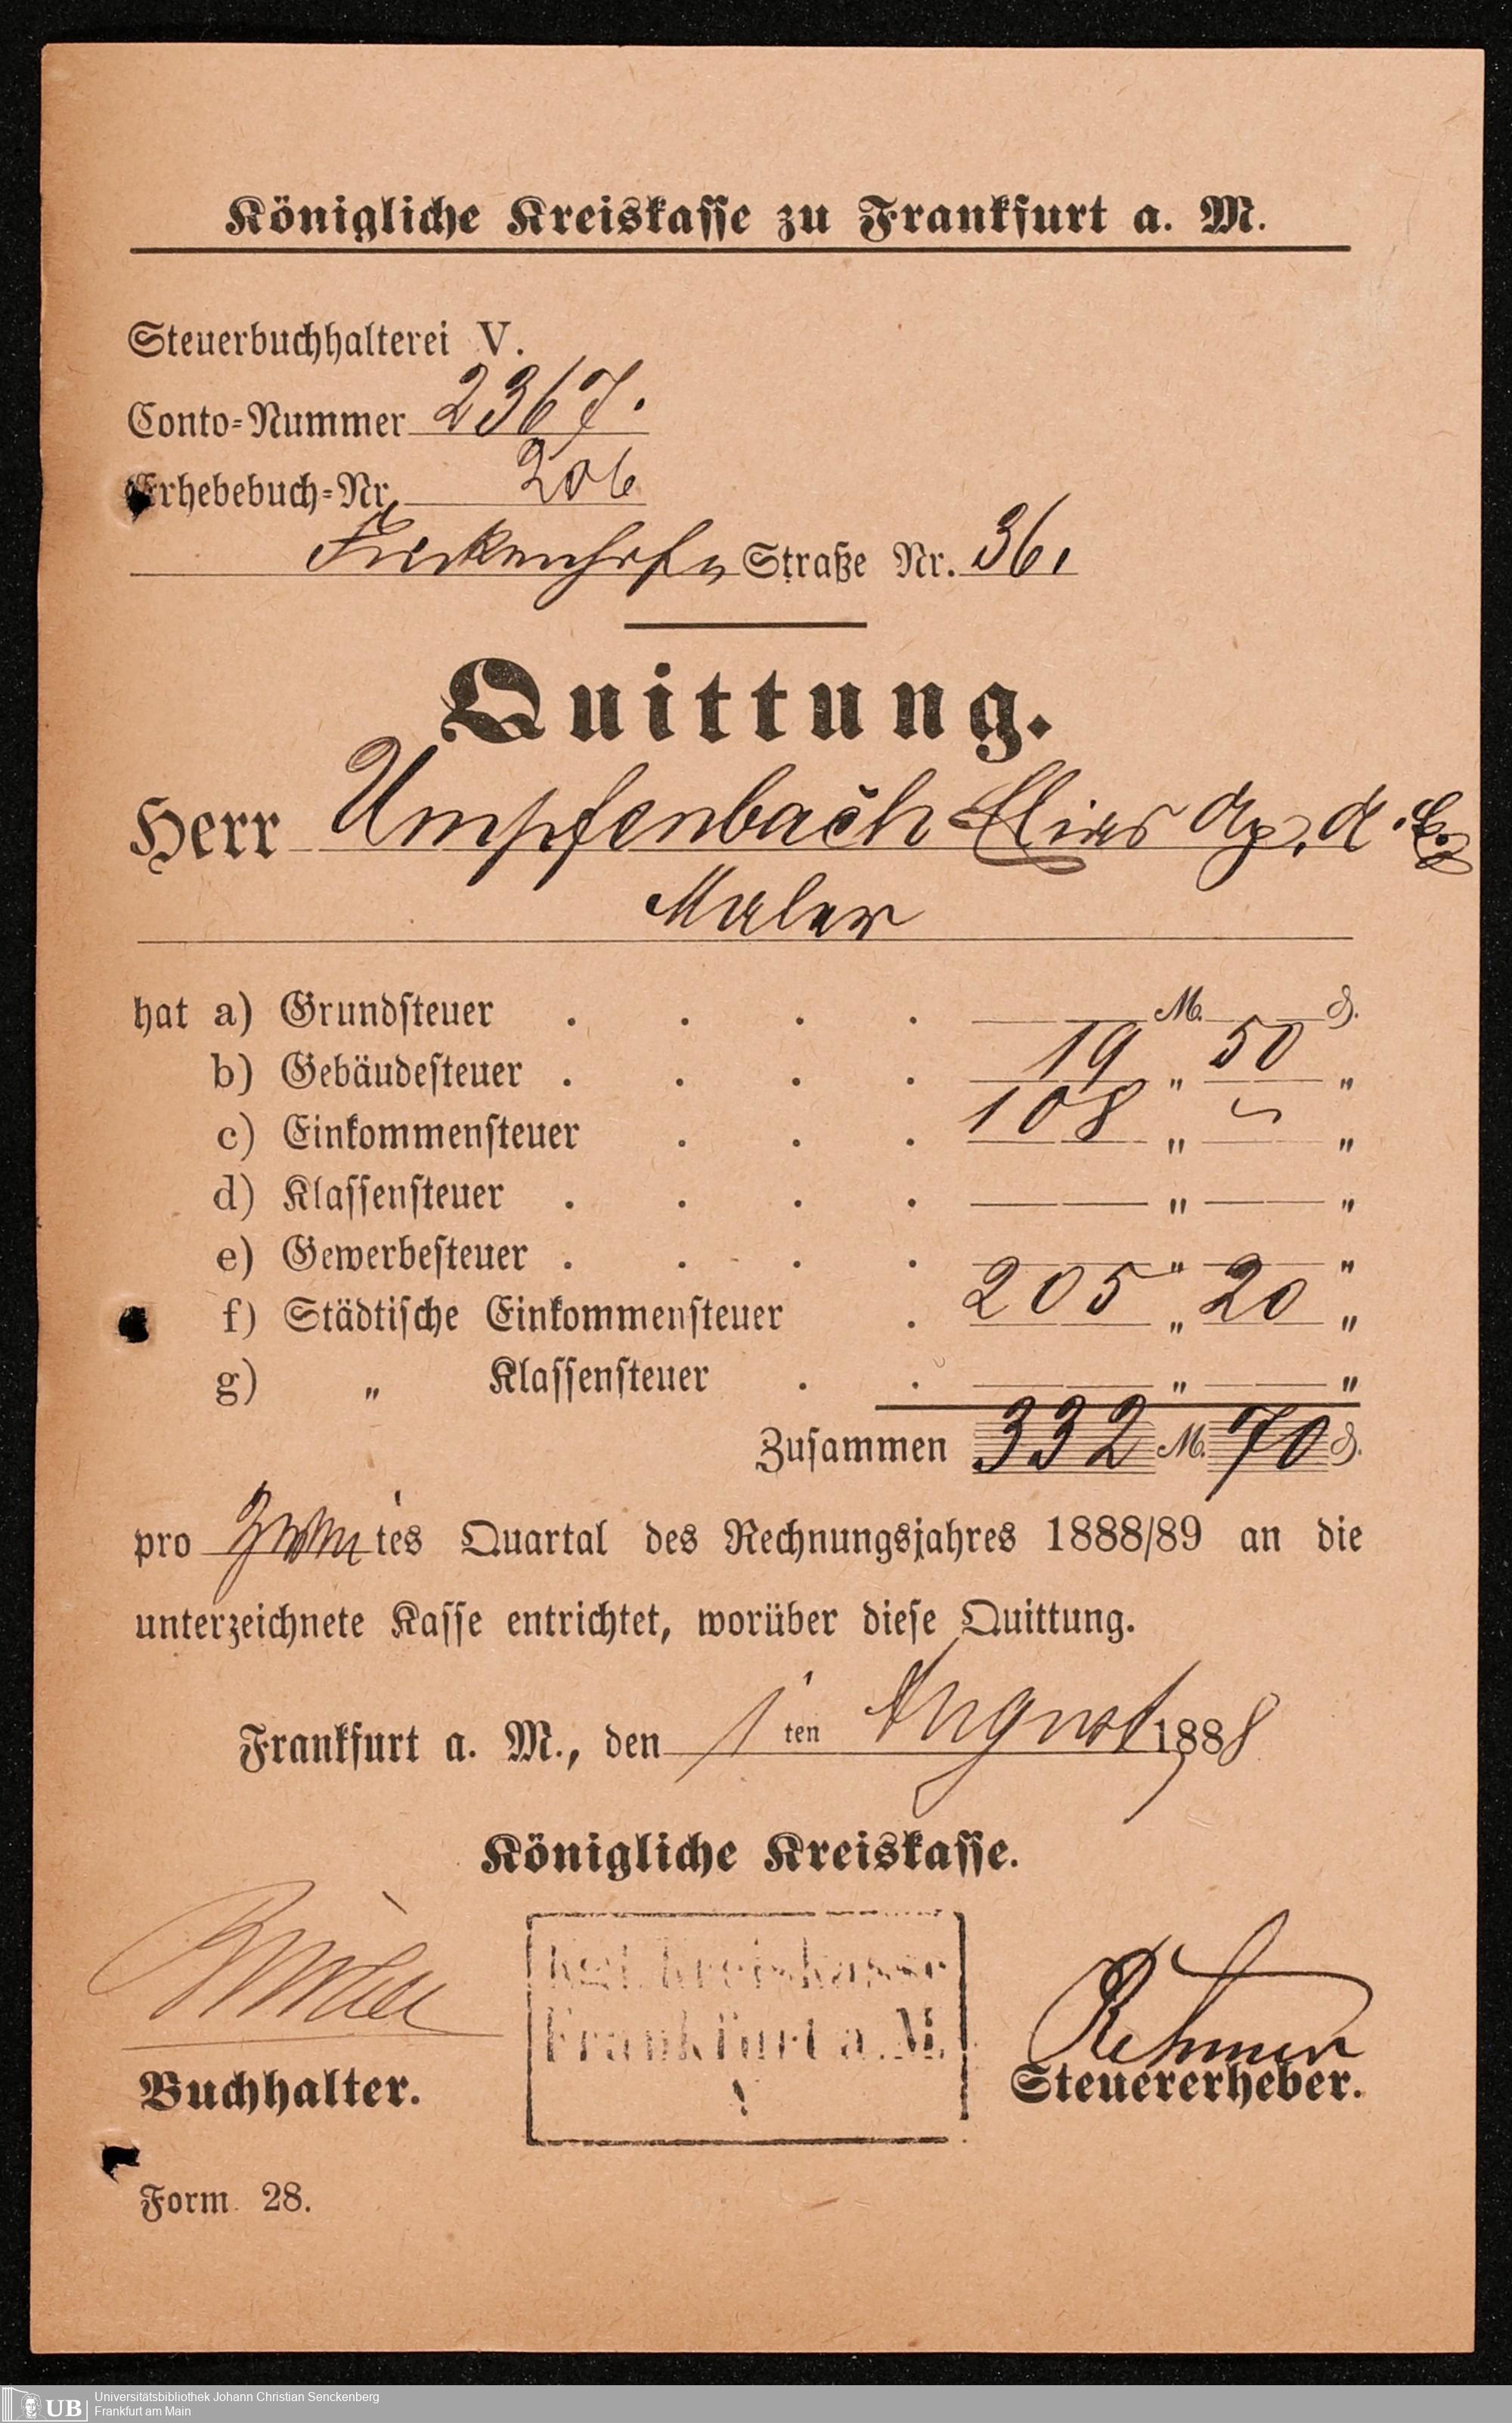 Königliche Kreiskasse zu Frankfurt a. M.
Steuerbuchhalterei V.
Conto-Nummer 2367.
Erhebebuch-Nr. 206
Straße Nr. 36.
Quittung.
Herr Umpfenbach
Maler
hat a) Grundsteuer . . . . M. ₰.
b) Gebäudesteuer . . . . 19 „ 50 „
c) Einkommensteuer . . . 108 „ — „
d) Klassensteuer . . . . „ „
e) Gewerbesteuer . . . . „ „
f) Städtische Einkommensteuer . 205 „ 20 „
g) „ Klassensteuer . . „ „
Zusammen 332 M. 70 ₰.
pro zweites Quartal des Rechnungsjahres 1888/89 an die
unterzeichnete Kasse entrichtet, worüber diese Quittung.
Frankfurt a. M., den 1ten August 1888
Königliche Kreiskasse.
Kgl. Kreiskasse
Frankfurt a. M.
Buchhalter.
Steuererheber.
Form 28.
UB Universitätsbibliothek Johann Christian Senckenberg
Frankfurt am Main